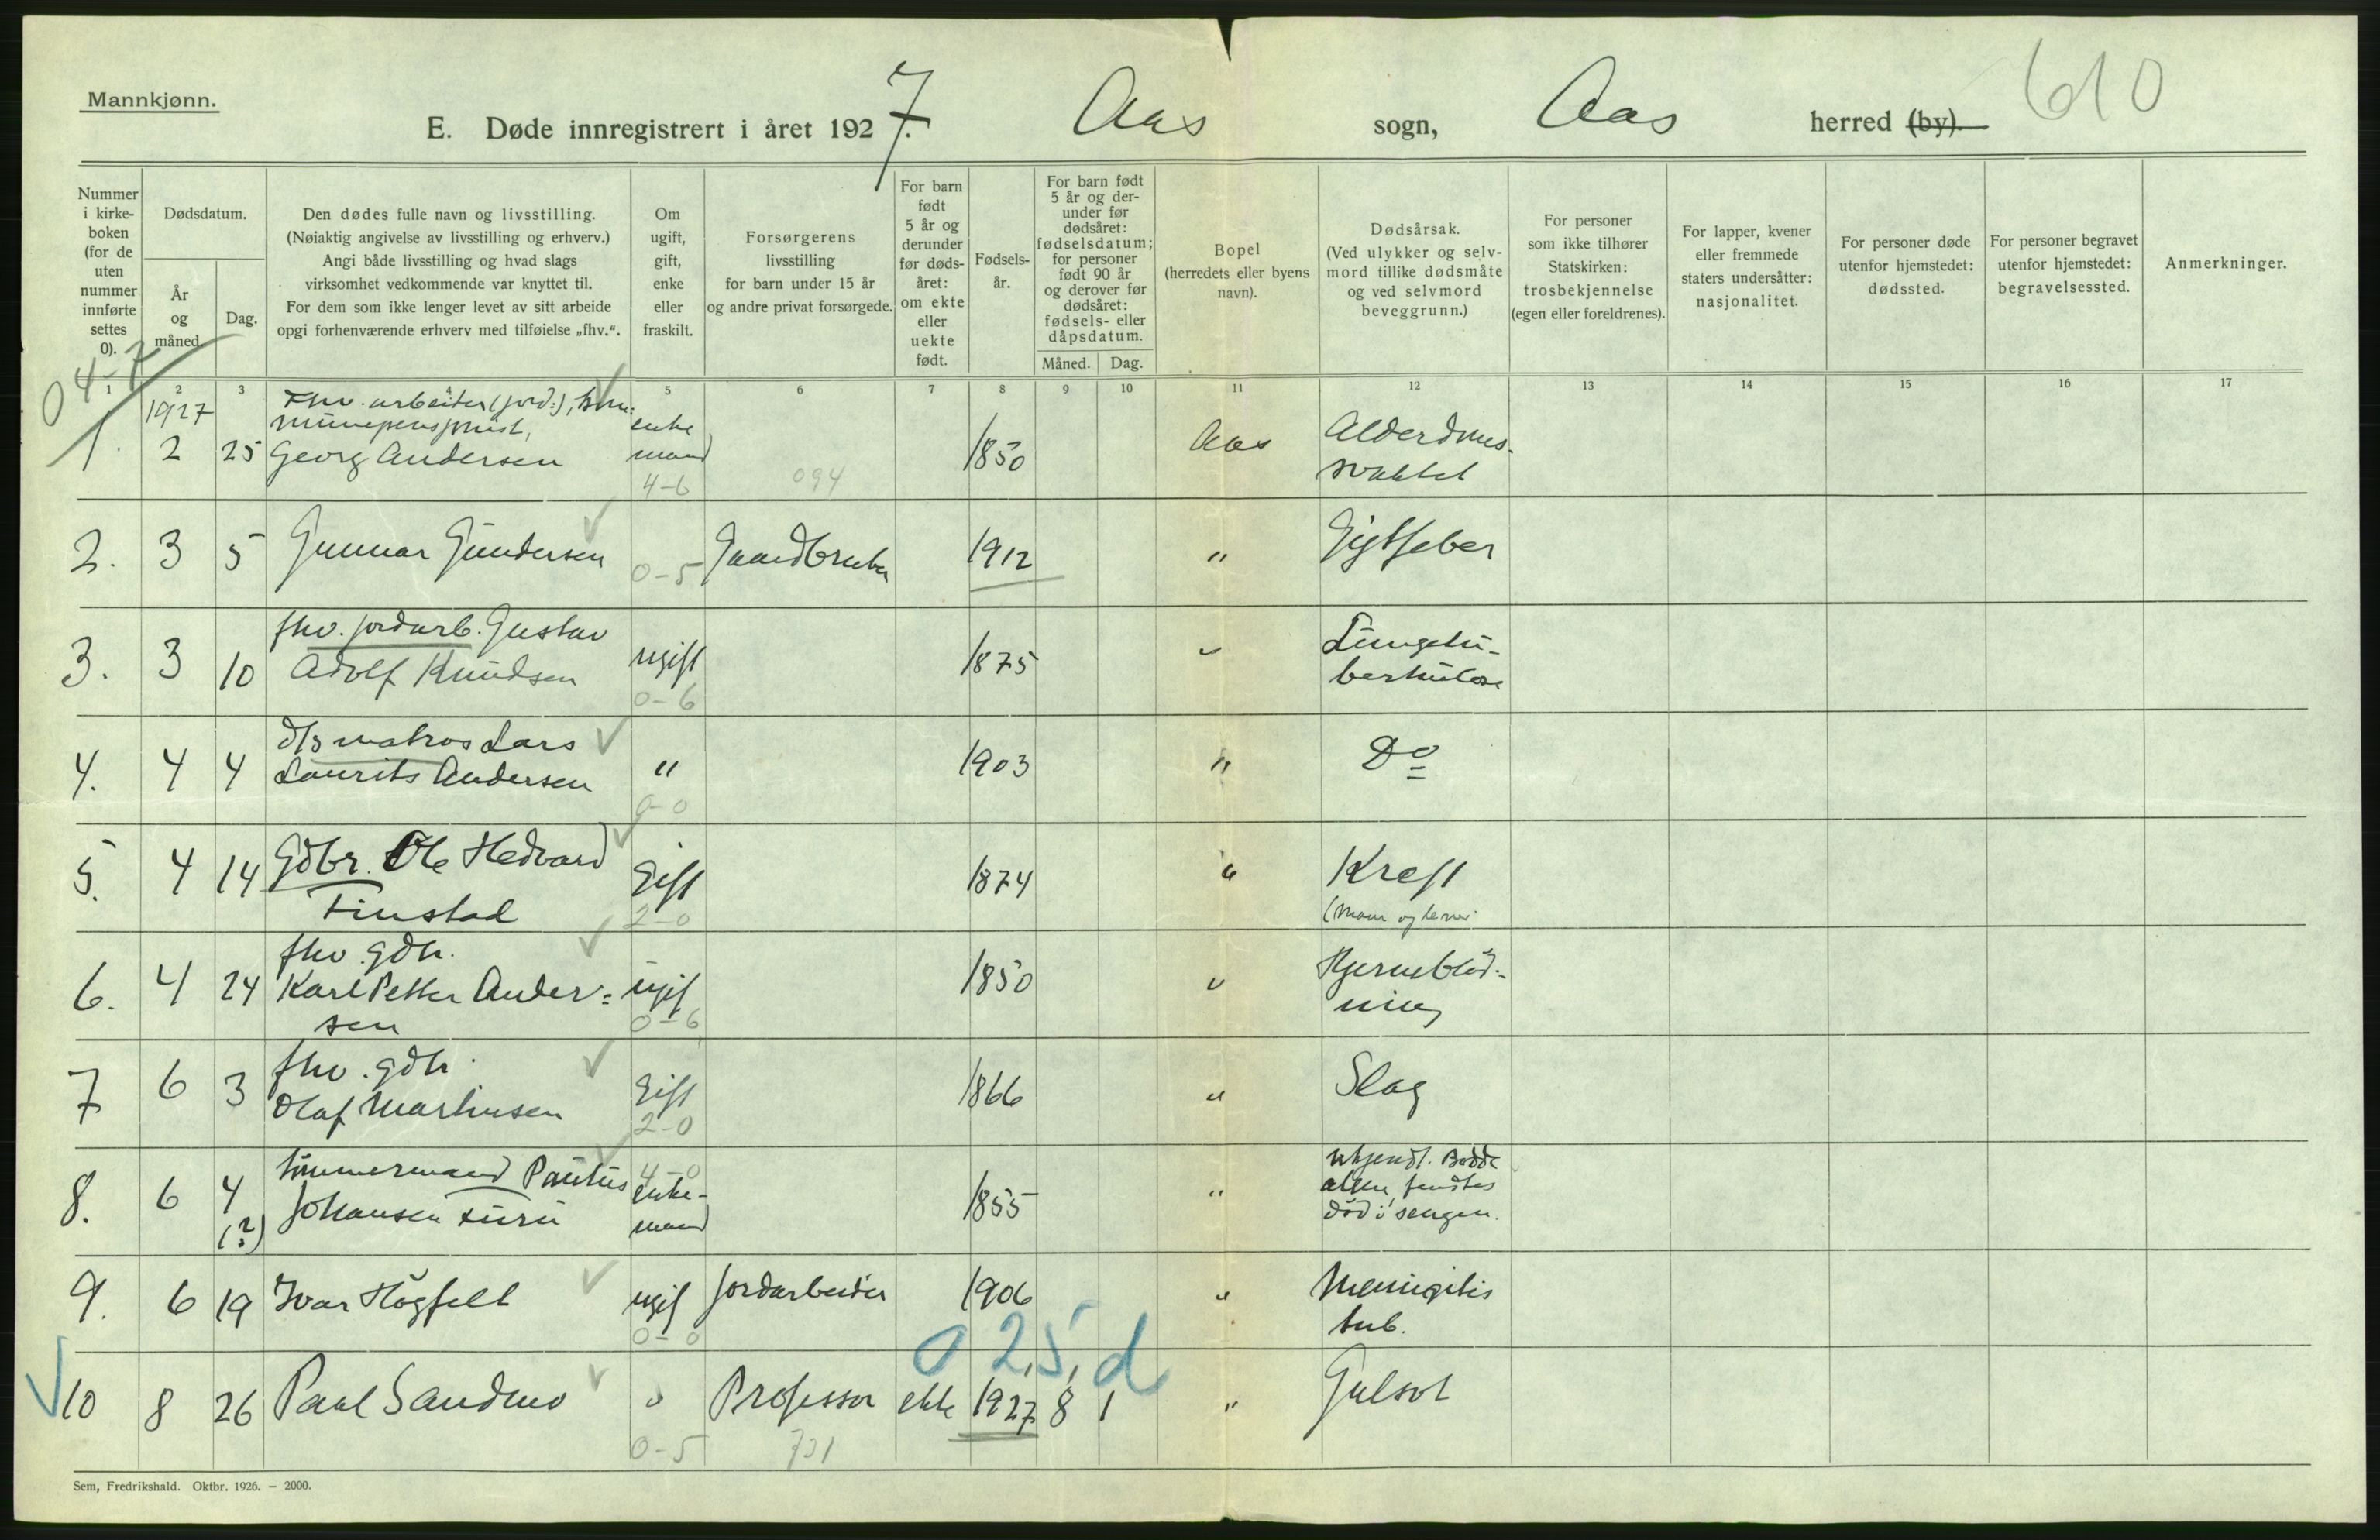 Mannkjønn.
E. Døde innregistrert i året 1927. Aas sogn, Aas herred (by).
610
Nummer i kirke-boken (for de uten nummer innførte settes 0).
Dødsdatum.
År og måned.
Dag.
Den dødes fulle navn og livsstilling.
(Nøiaktig angivelse av livsstilling og erhverv.)
Angi både livsstilling og hvad slags
virksomhet vedkommende var knyttet til.
For dem som ikke lenger levet av sitt arbeide
opgi forhenværende erhverv med tilføielse „fhv.“.
Om ugift, gift, enke eller fraskilt.
Forsørgerens
livsstilling
for barn under 15 år
og andre privat forsørgede.
For barn født 5 år og derunder før døds-året: om ekte eller uekte født.
Fødsels-år.
For barn født 5 år og der-under før dødsåret: fødselsdatum; for personer født 90 år og derover før dødsåret: fødsels- eller dåpsdatum.
Måned. Dag.
Bopel
(herredets eller byens
navn).
Dødsårsak.
(Ved ulykker og selv-
mord tillike dødsmåte
og ved selvmord
beveggrunn.)
For personer
som ikke tilhører
Statskirken:
trosbekjennelse
(egen eller foreldrenes).
For lapper, kvener
eller fremmede
staters undersåtter:
nasjonalitet.
For personer døde
utenfor hjemstedet:
dødssted.
For personer begravet
utenfor hjemstedet:
begravelsessted.
Anmerkninger.
04-7
1 2 3 4 5 6 7 8 9 10 11 12 13 14 15 16 17
1927
Fhv. arbeider (jord.), kom-
1. 2 25 Georg Andersen enke
mand 1850 Aas Alderdoms-
svakhet
4-6 094
2. 3 5 Gunnar Gundersen 0-5 Gaardbruker 1912 " Gigtfeber
3. 3 10 fhv. jordarb. Gustav
Adolf Knudsen ugift 1875 " Lungetu-
berkulose
0-6
4. 4 4 d/s matros Lars
Laurits Andersen " 1903 " Do
0-0
5. 4 14 Gdbr. Ole Hedvard
Finstad Gift 1874 " Kreft
2-0
6. 4 24 fhv. gdbr.
Karl Petter Ander=
sen ugift 1850 " Hjerneblød-
ning
0-6
7 6 3 fhv. gdbr.
Olaf Martinsen Gift 1866 " Slag
2-0
8. 6 4 (?) tømmermand Paulus
Johansen Furu 4-0
enke-
mand 1855 " ukjendt. Bodde
alene, fandtes
død i sengen.
9. 6 19 Ivar Høgfelt ugift jordarbeider 1906 " Meningitis
tub.
0-0
0 25 d
10 8 26 Paul Sandmo " Professor ekte 1927 8 1 " Gulsot
0-5 721
Sem, Fredrikshald. Oktbr. 1926. — 2000.